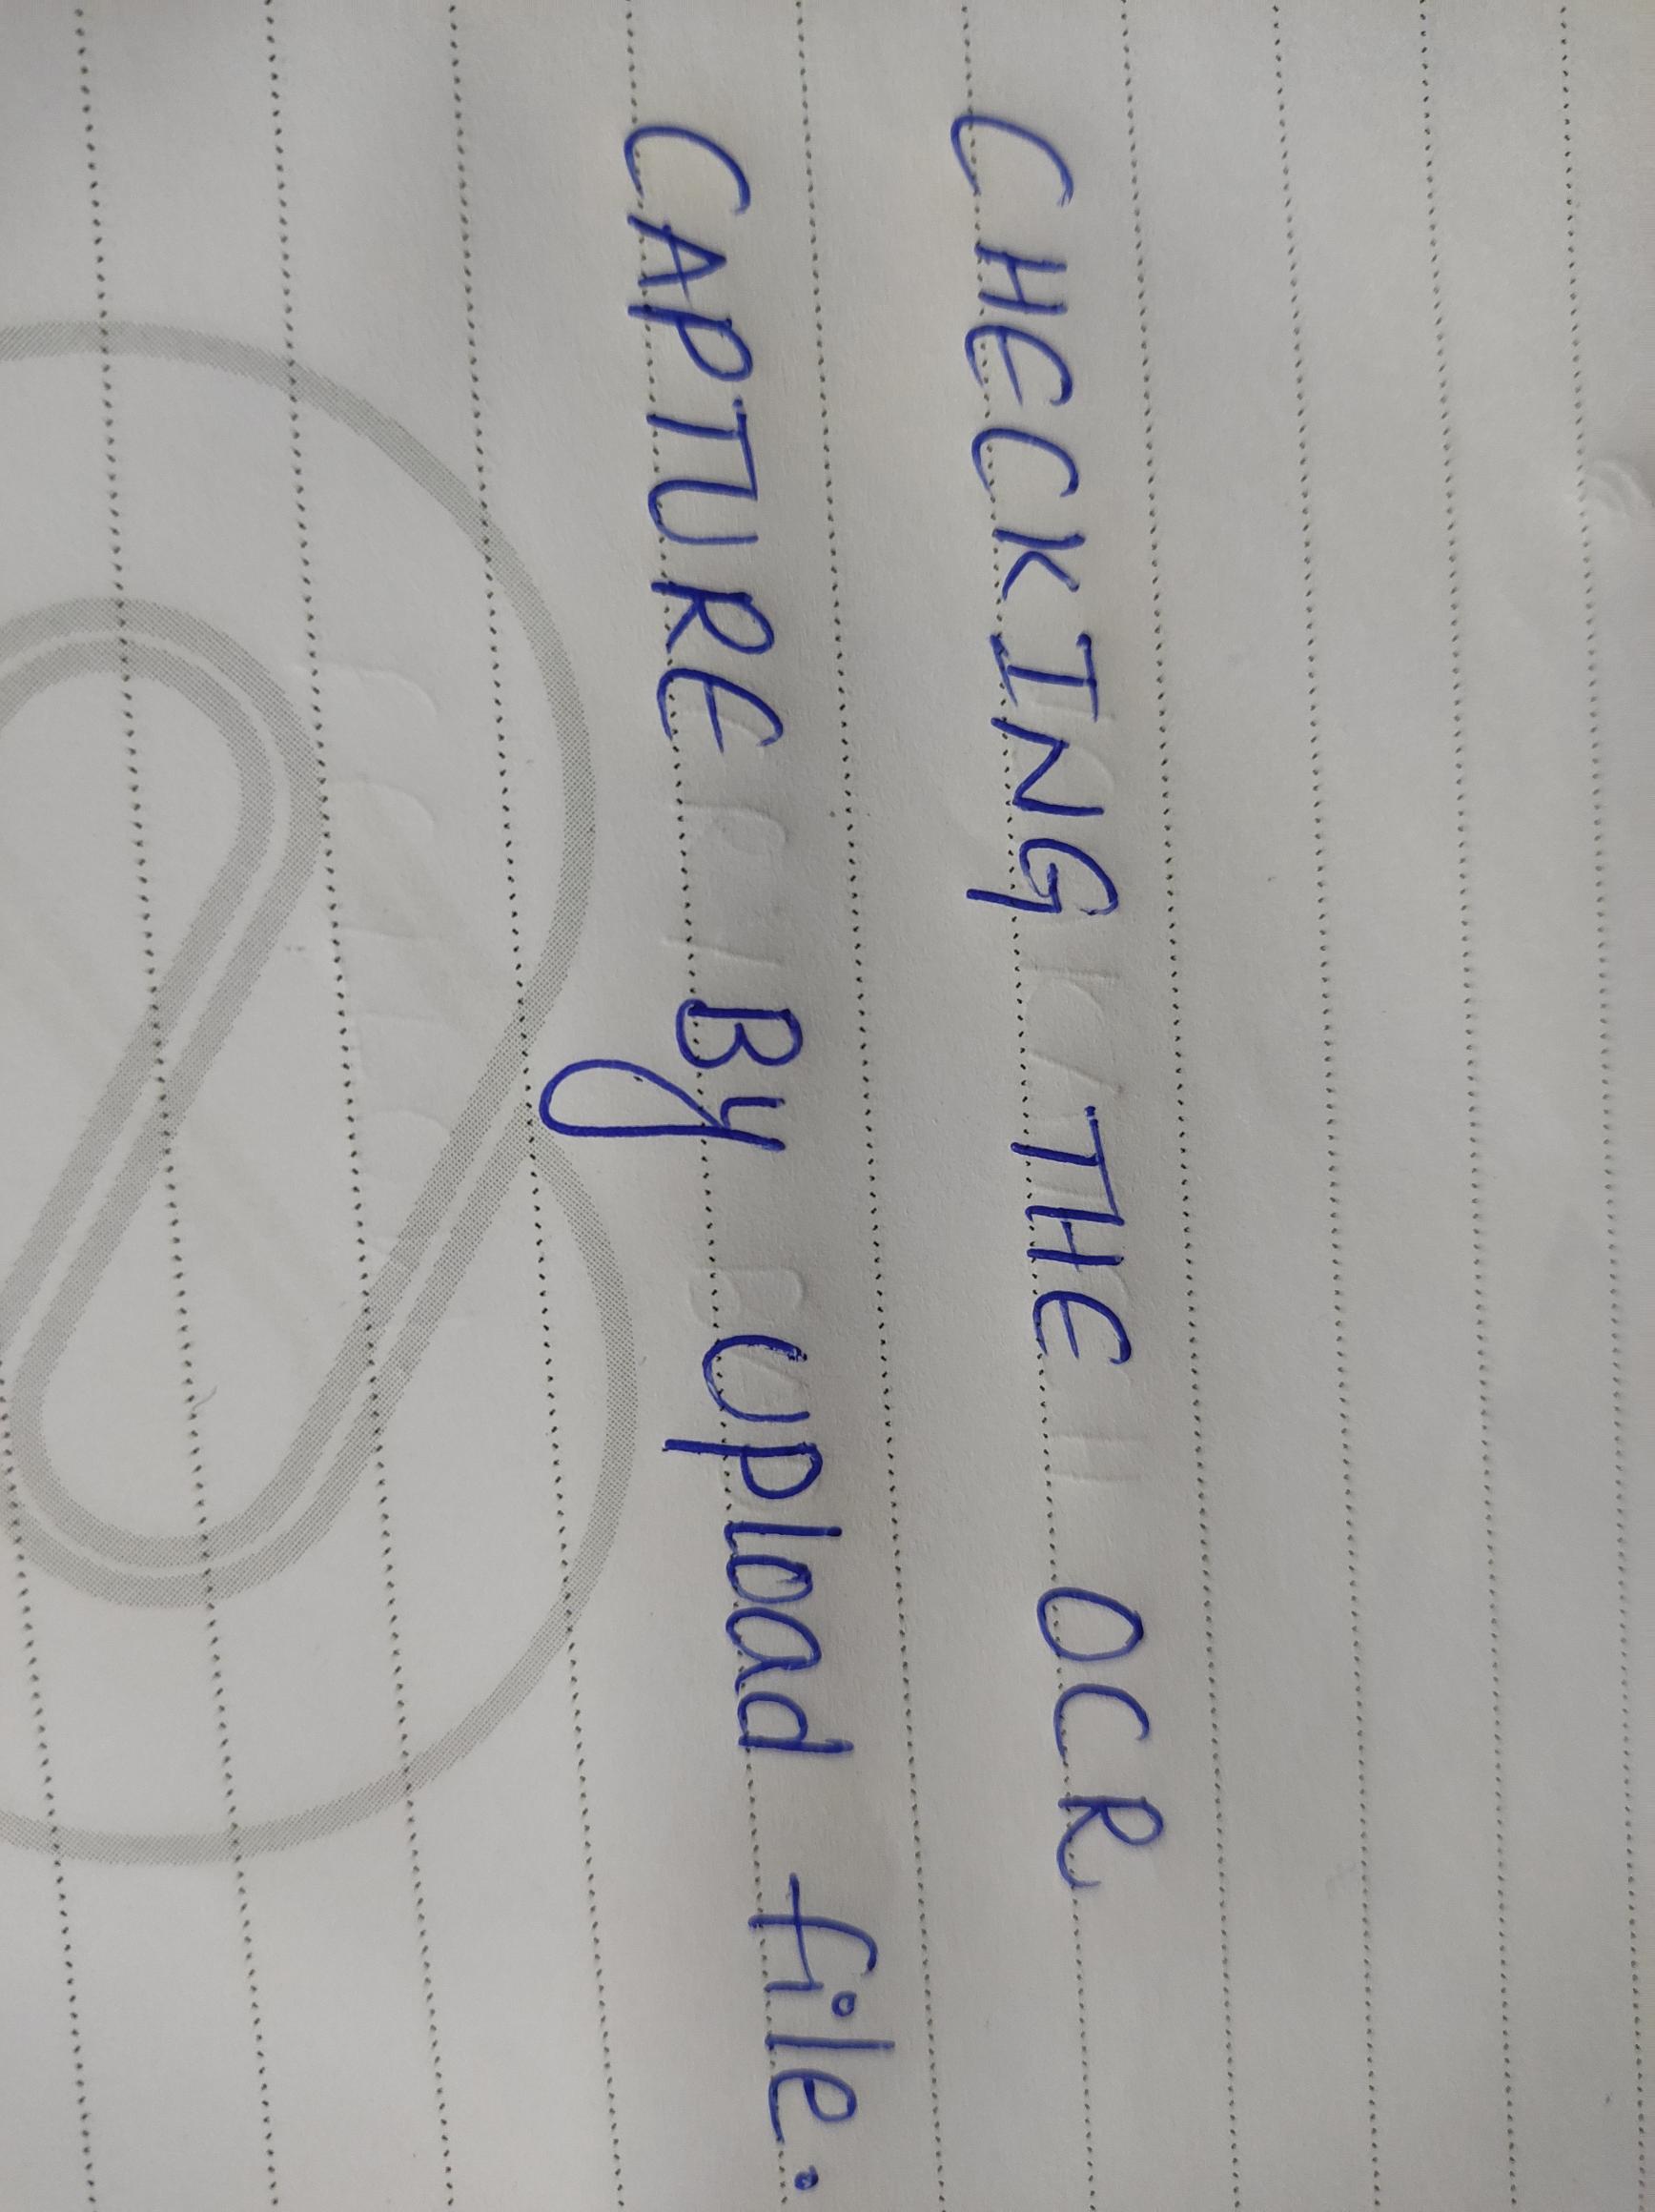 CHECKING THE OCR
CAPTURE By Upload file.